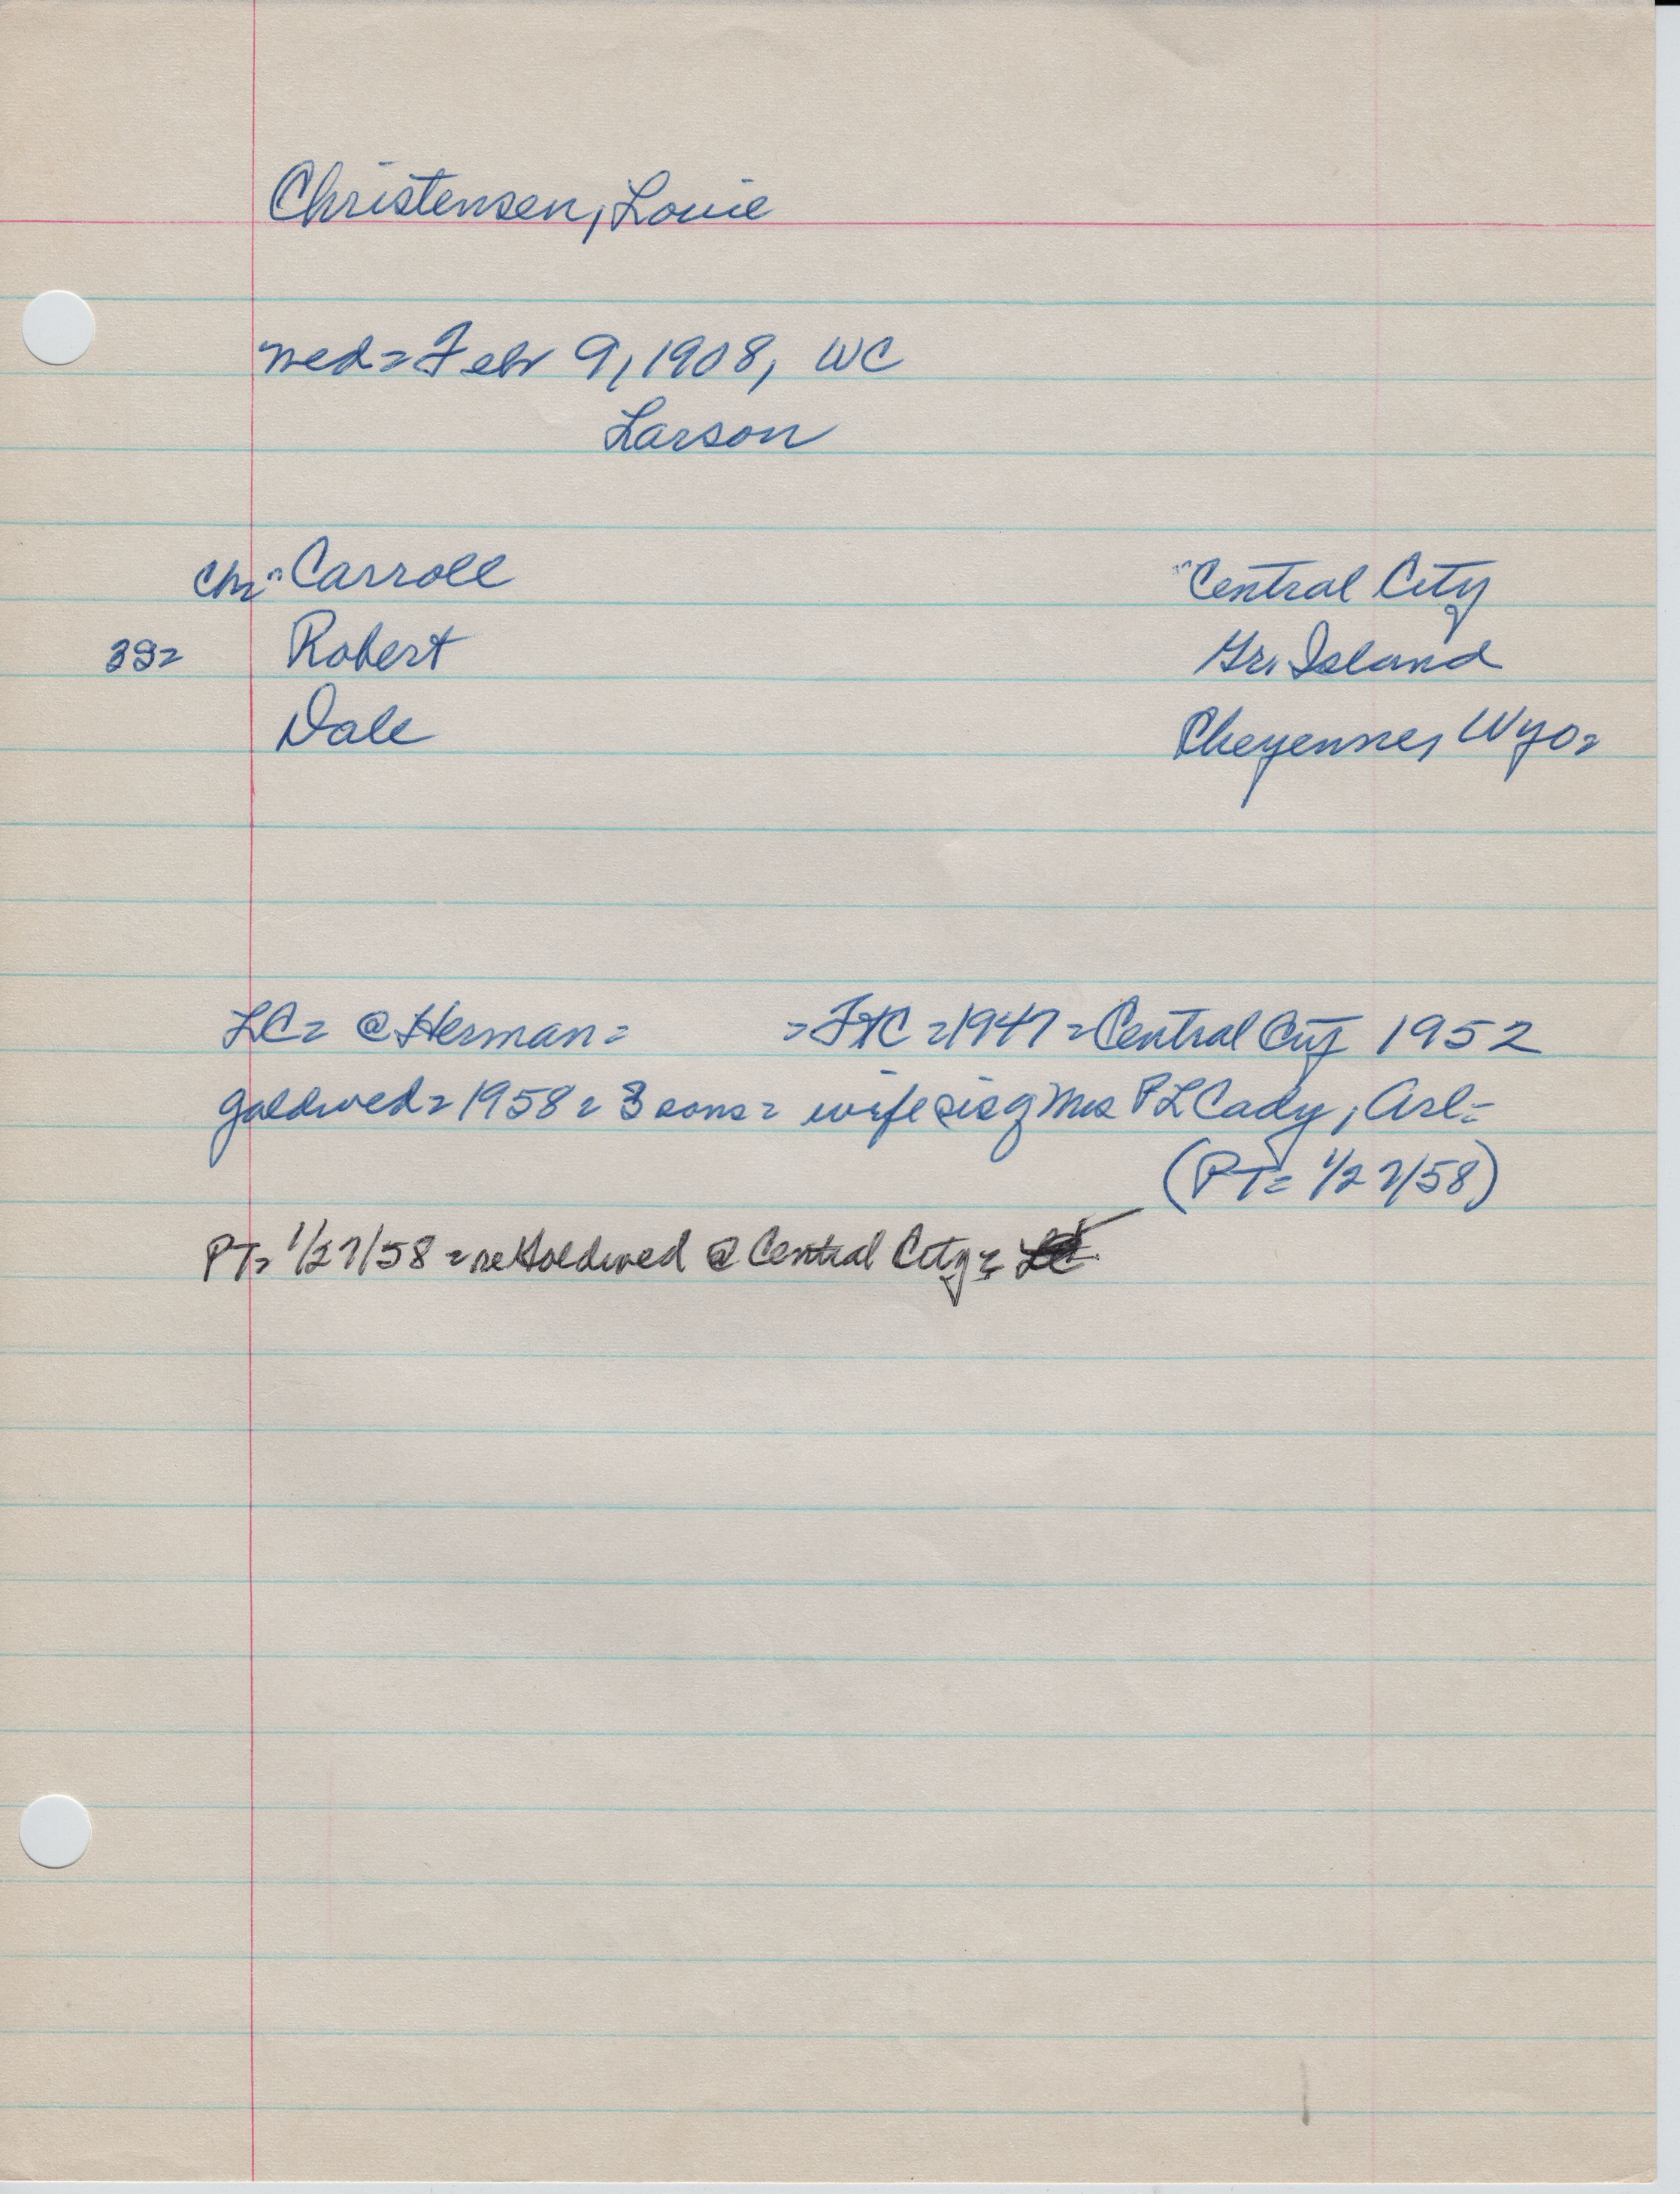 Christensen, Louie
wed= Febr 9, 1908, WC
Larson
Chr= Carroll Central City
3S= Robert Gr. Island
Dale Cheyenne, Wyo=
LC= @ Herman= =FtC =1947 =Central City 1952
goldwed= 1958= 3 sons= wife sis of Mrs PL Cady, Arl=
(PT= 1/27/58)
PT= 1/27/58 =re Goldwed @ Central City=